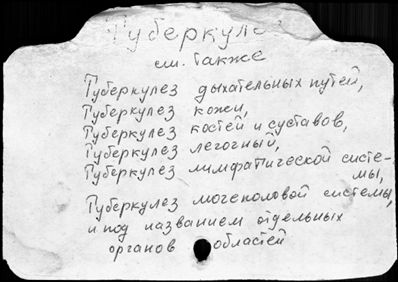 Туберкулез
см. также
Туберкулез дыхательных путей,
Туберкулез кожи,
Туберкулез костей и суставов,
Туберкулез легочный,
Туберкулез лимфатической систе-
мы,
Туберкулез мочеполовой системы,
и под названием отдельных
органов областей